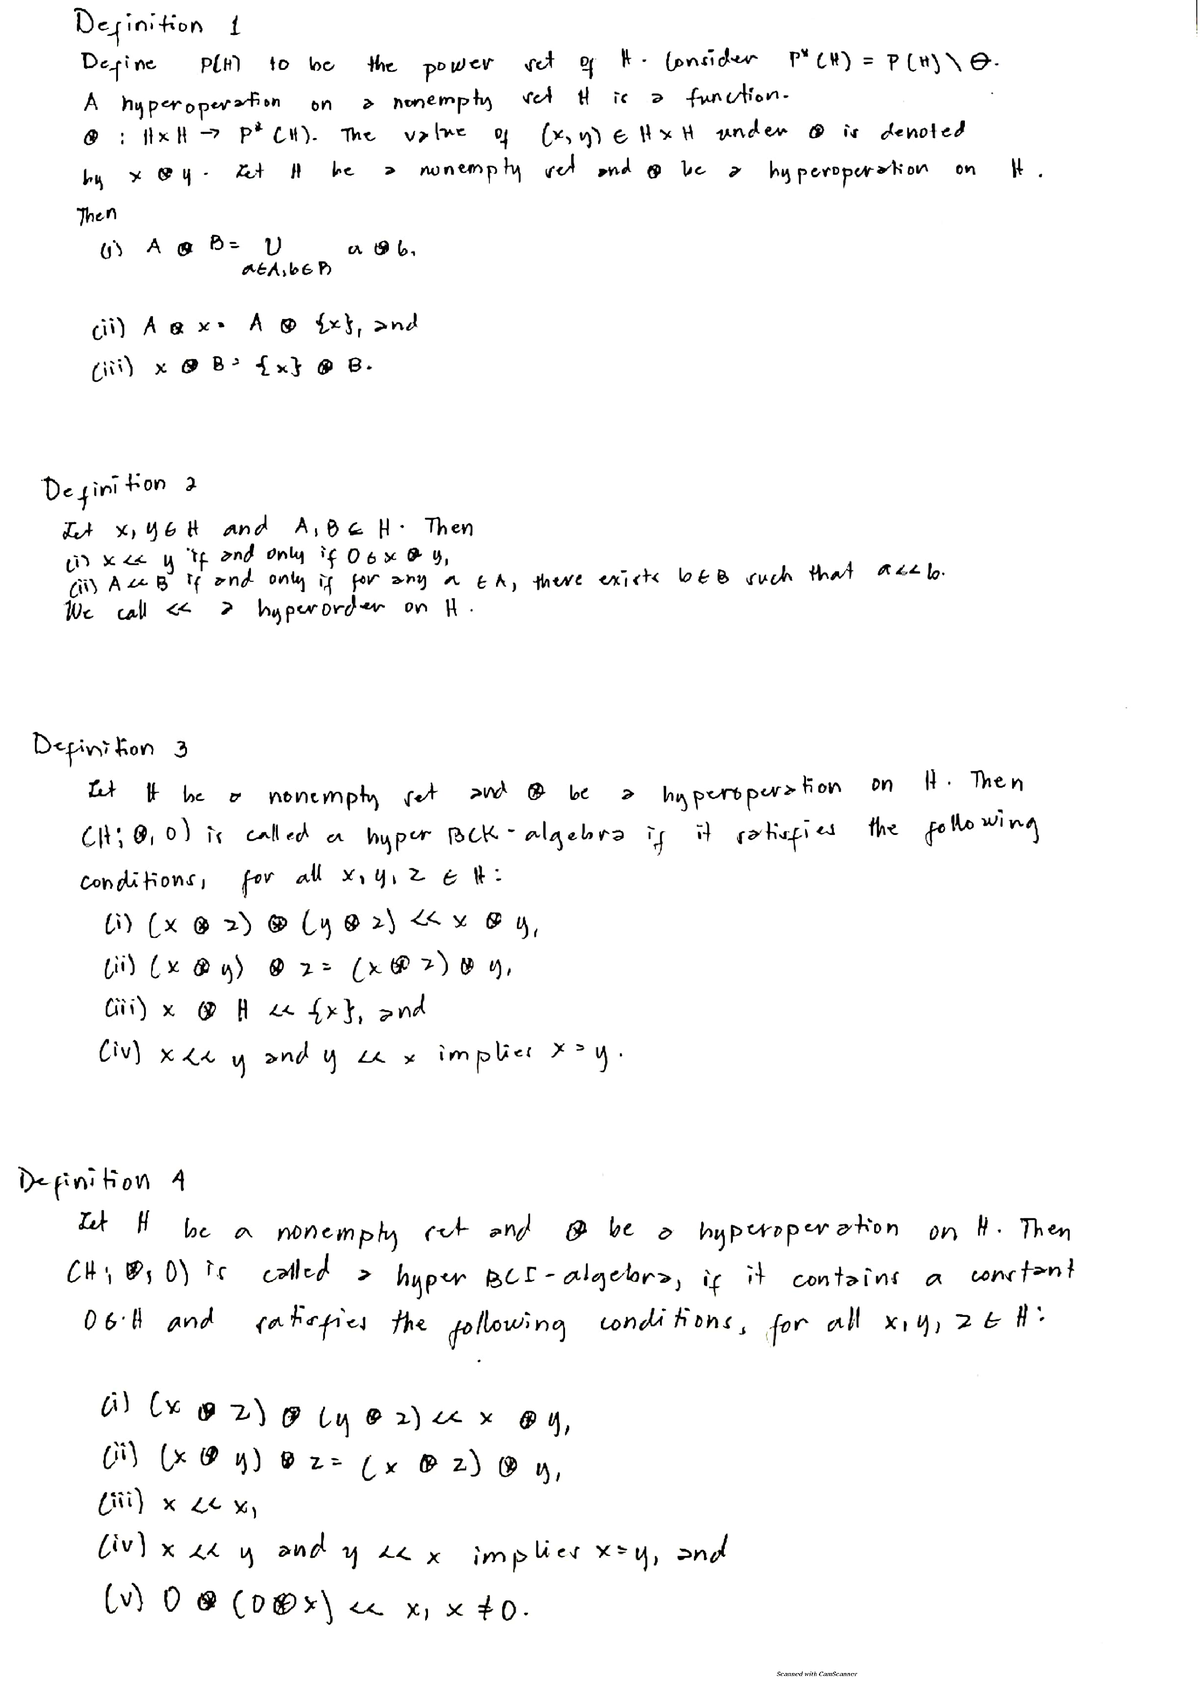 Definition 1
Define P(H) to be the power set of H. Consider P*(H) = P(H) \ ∅.
A hyperoperation on a nonempty set H is a function.
⊛ : H×H → P*(H). The value of (x, y) ∈ H×H under ⊛ is denoted
by x ⊛ y. Let H be a nonempty set and ⊛ be a hyperoperation on H.
Then
(i) A ⊛ B = ∪ a ⊛ b,
a∈A, b∈B
(ii) A ⊛ x = A ⊛ {x}, and
(iii) x ⊛ B = {x} ⊛ B.
Definition 2
Let x, y ∈ H and A, B ⊆ H. Then
(i) x << y if and only if 0 ∈ x ⊛ y,
(ii) A << B if and only if for any a ∈ A, there exists b ∈ B such that a << b.
We call << a hyperorder on H.
Definition 3
Let H be a nonempty set and ⊛ be a hyperoperation on H. Then
(H; ⊛, 0) is called a hyper BCK-algebra if it satisfies the following
conditions, for all x, y, z ∈ H:
(i) (x ⊛ z) ⊛ (y ⊛ z) << x ⊛ y,
(ii) (x ⊛ y) ⊛ z = (x ⊛ z) ⊛ y,
(iii) x ⊛ H << {x}, and
(iv) x << y and y << x implies x = y.
Definition 4
Let H be a nonempty set and ⊛ be a hyperoperation on H. Then
(H; ⊛, 0) is called a hyper BCI-algebra, if it contains a constant
0 ∈ H and satisfies the following conditions, for all x, y, z ∈ H:
(i) (x ⊛ z) ⊛ (y ⊛ z) << x ⊛ y,
(ii) (x ⊛ y) ⊛ z = (x ⊛ z) ⊛ y,
(iii) x << x,
(iv) x << y and y << x implies x = y, and
(v) 0 ⊛ (0 ⊛ x) << x, x ≠ 0.
Scanned with CamScanner